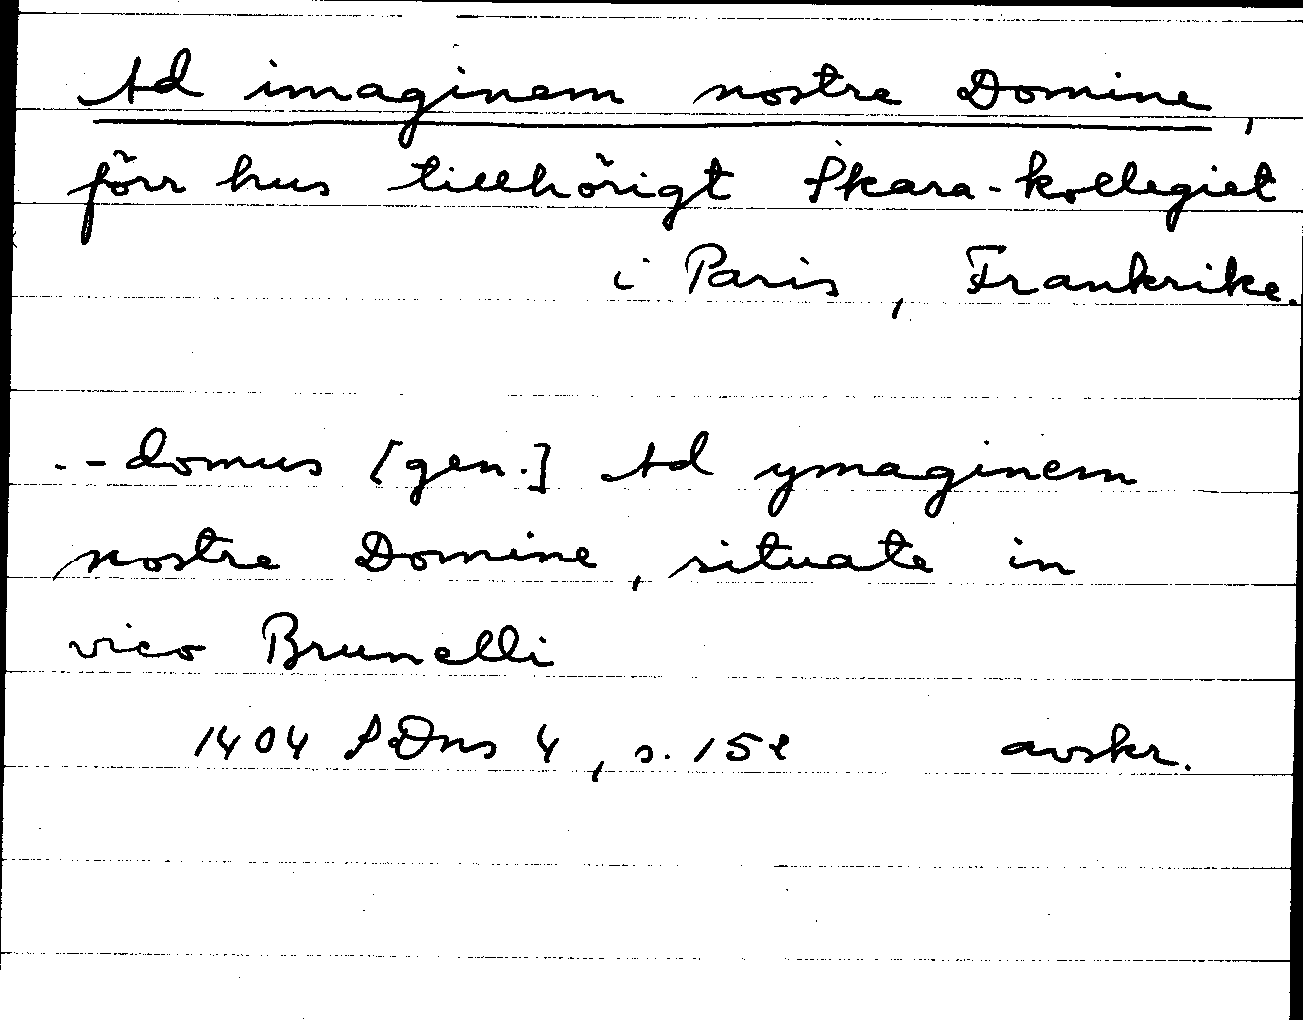 Ad imaginem nostre Domine,
förr hus tillhörigt Skara-kollegiet
i Paris, Frankrike.
.-domus [gen.] Ad ymaginem
nostre Domine, situate in
vico Brunelli
1404 SDns 4, s. 152 avskr.